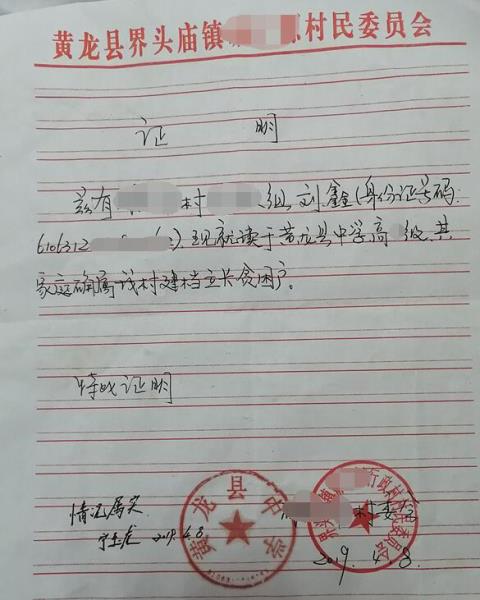 黄龙县界头庙镇 村民委员会
证 明
兹有 村 组 刘鑫(身份证号码:
6106312 ). 现就读于黄龙县中学高 级. 其
家庭确属该村建档立卡贫困户。
特此证明
情况属实
2019.4.8
黄龙县中学
村委会
2019. 4. 8.
界头庙镇 行政村 委员会